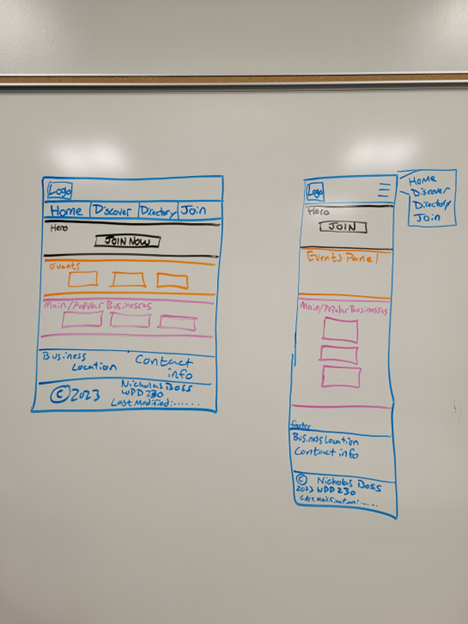 Logo
Home Discover Directory Join
Hero
JOIN NOW
Events
Main/Popular Businesses
Business
Location
Contact
info
© 2023
Nicholas Boss
WDD 230
Last Modified:......
Logo
Home
Discover
Directory
Join
Hero
JOIN
Events Panel
Main/Popular Businesses
footer
Business Location
Contact info
© Nicholas Boss
2023 WDD 230